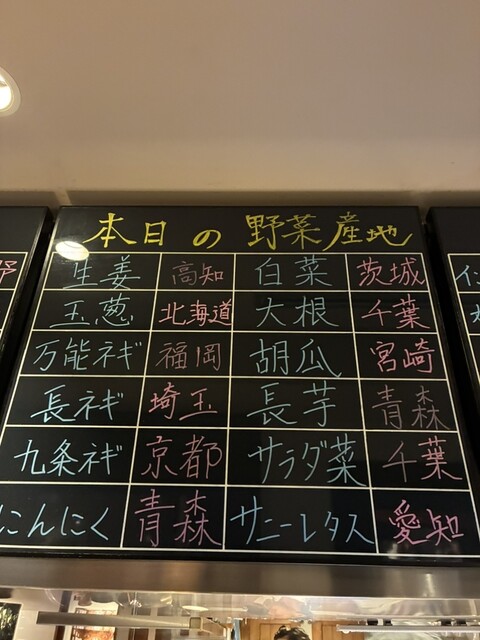 本日の野菜産地
生姜 高知 白菜 茨城
玉葱 北海道 大根 千葉
万能ネギ 福岡 胡瓜 宮崎
長ネギ 埼玉 長芋 青森
九条ネギ 京都 サラダ菜 千葉
にんにく 青森 サニーレタス 愛知